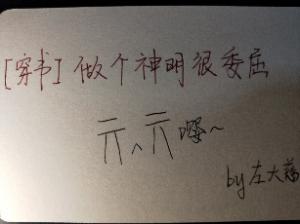 [穿书] 做个神明很委屈
亓^亓嘤~
by左大萌